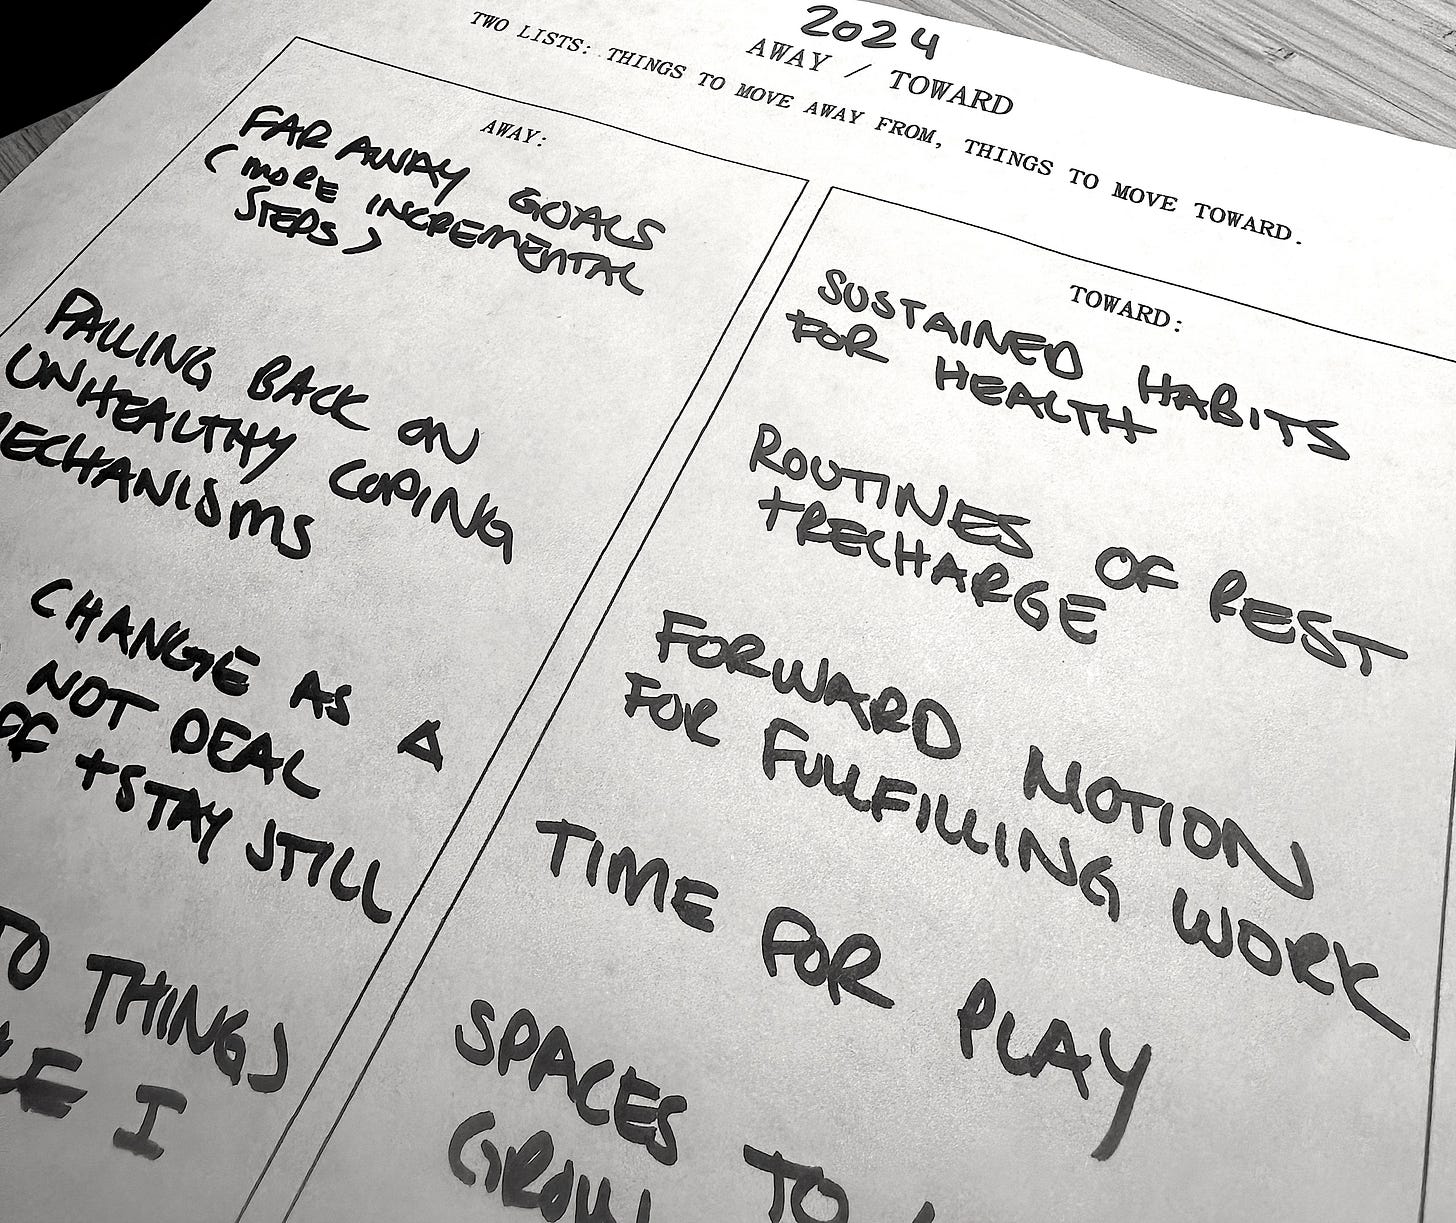 2024
AWAY / TOWARD
TWO LISTS: THINGS TO MOVE AWAY FROM, THINGS TO MOVE TOWARD.
AWAY:
FAR AWAY GOALS
(MORE INCREMENTAL
STEPS)
FALLING BACK ON
UNHEALTHY COPING
MECHANISMS
CHANGE AS A
NOT DEAL
+ STAY STILL
TO THINGS
I
TOWARD:
SUSTAINED HABITS
FOR HEALTH
ROUTINES OF REST
+ RECHARGE
FORWARD MOTION
FOR FULFILLING WORK
TIME FOR PLAY
SPACES TO
GROW